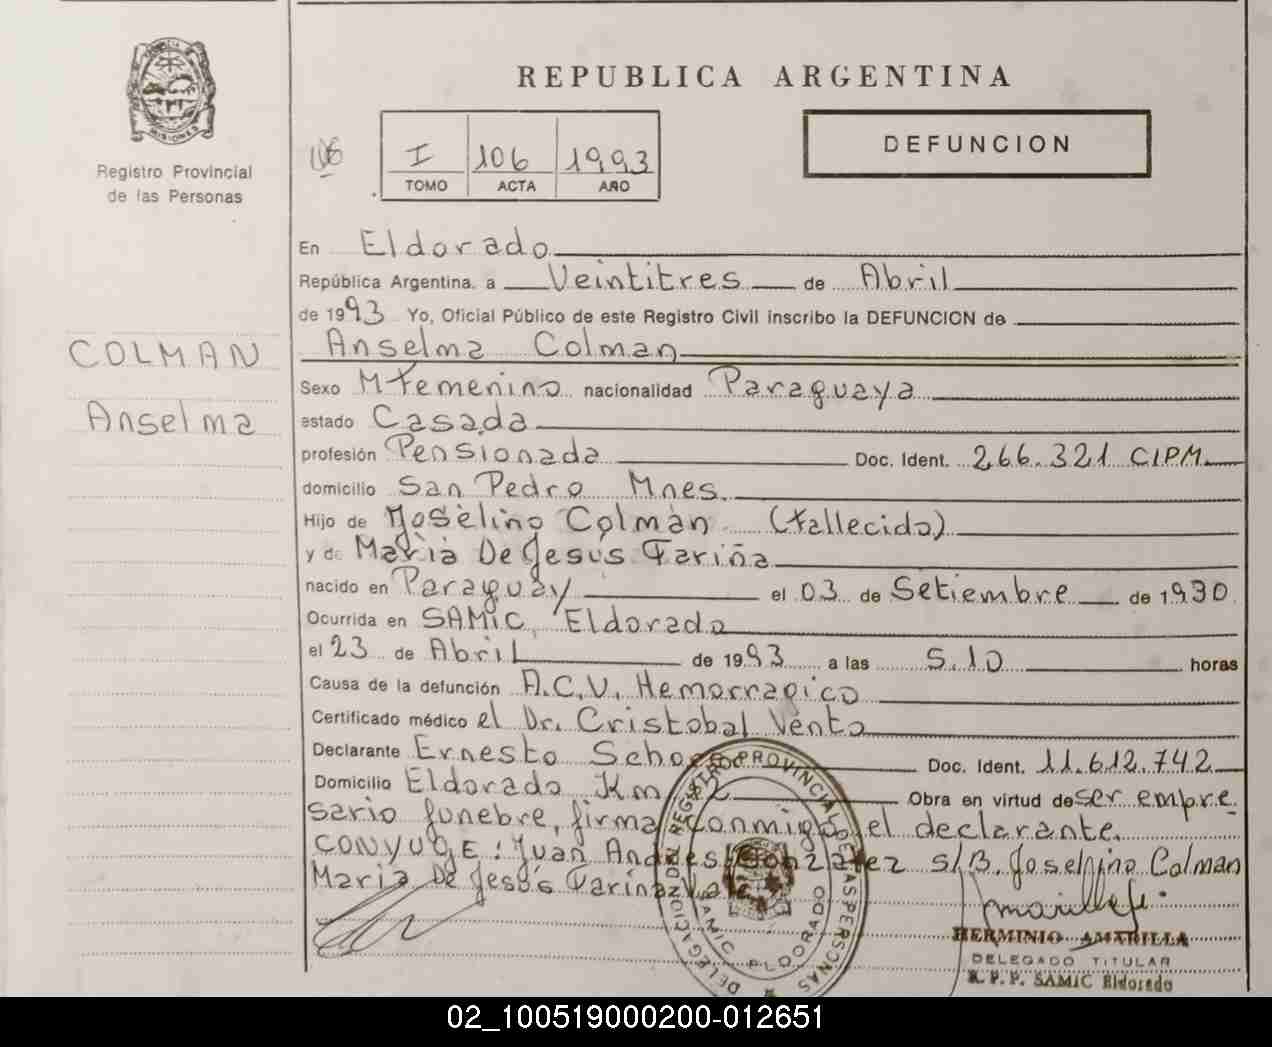 REPUBLICA ARGENTINA
PROVINCIA DE MISIONES
Registro Provincial
de las Personas
106
I 106 1993
TOMO ACTA AÑO
DEFUNCION
COLMAN
Anselma
En Eldorado
República Argentina, a Veintitres de Abril
de 1993 Yo, Oficial Público de este Registro Civil inscribo la DEFUNCION de
Anselma Colman
Sexo Femenino nacionalidad Paraguaya
estado Casada
profesión Pensionada Doc. Ident. 266.321 CIPM
domicilio San Pedro Mnes.
Hijo de Coman (fallecido)
y de Maria De Jesús Fariña
nacido en Paraguay el 03 de Setiembre de 1930
Ocurrida en SAMiC, Eldorado
el 23 de Abril de 1993 a las 5.10 horas
Causa de la defunción A.C.V. Hemorragico
Certificado médico el Dr. Cristobal Vento
Declarante Ernesto Doc. Ident. 11.612.742
Domicilio Eldorado Km 2 Obra en virtud de ser empre
sario funebre, firma conmigo el declarante.
CONYUGE: Juan Andres Gonzalez s/B. Joselino Colman
Maria De Jesús Farina Vale
DELEGACION REGISTRO PROVINCIAL DE LAS PERSONAS
SAMIC ELDORADO
HERMINIO AMARILLA
DELEGADO TITULAR
R. P. P. SAMIC Eldorado
02_100519000200-012651